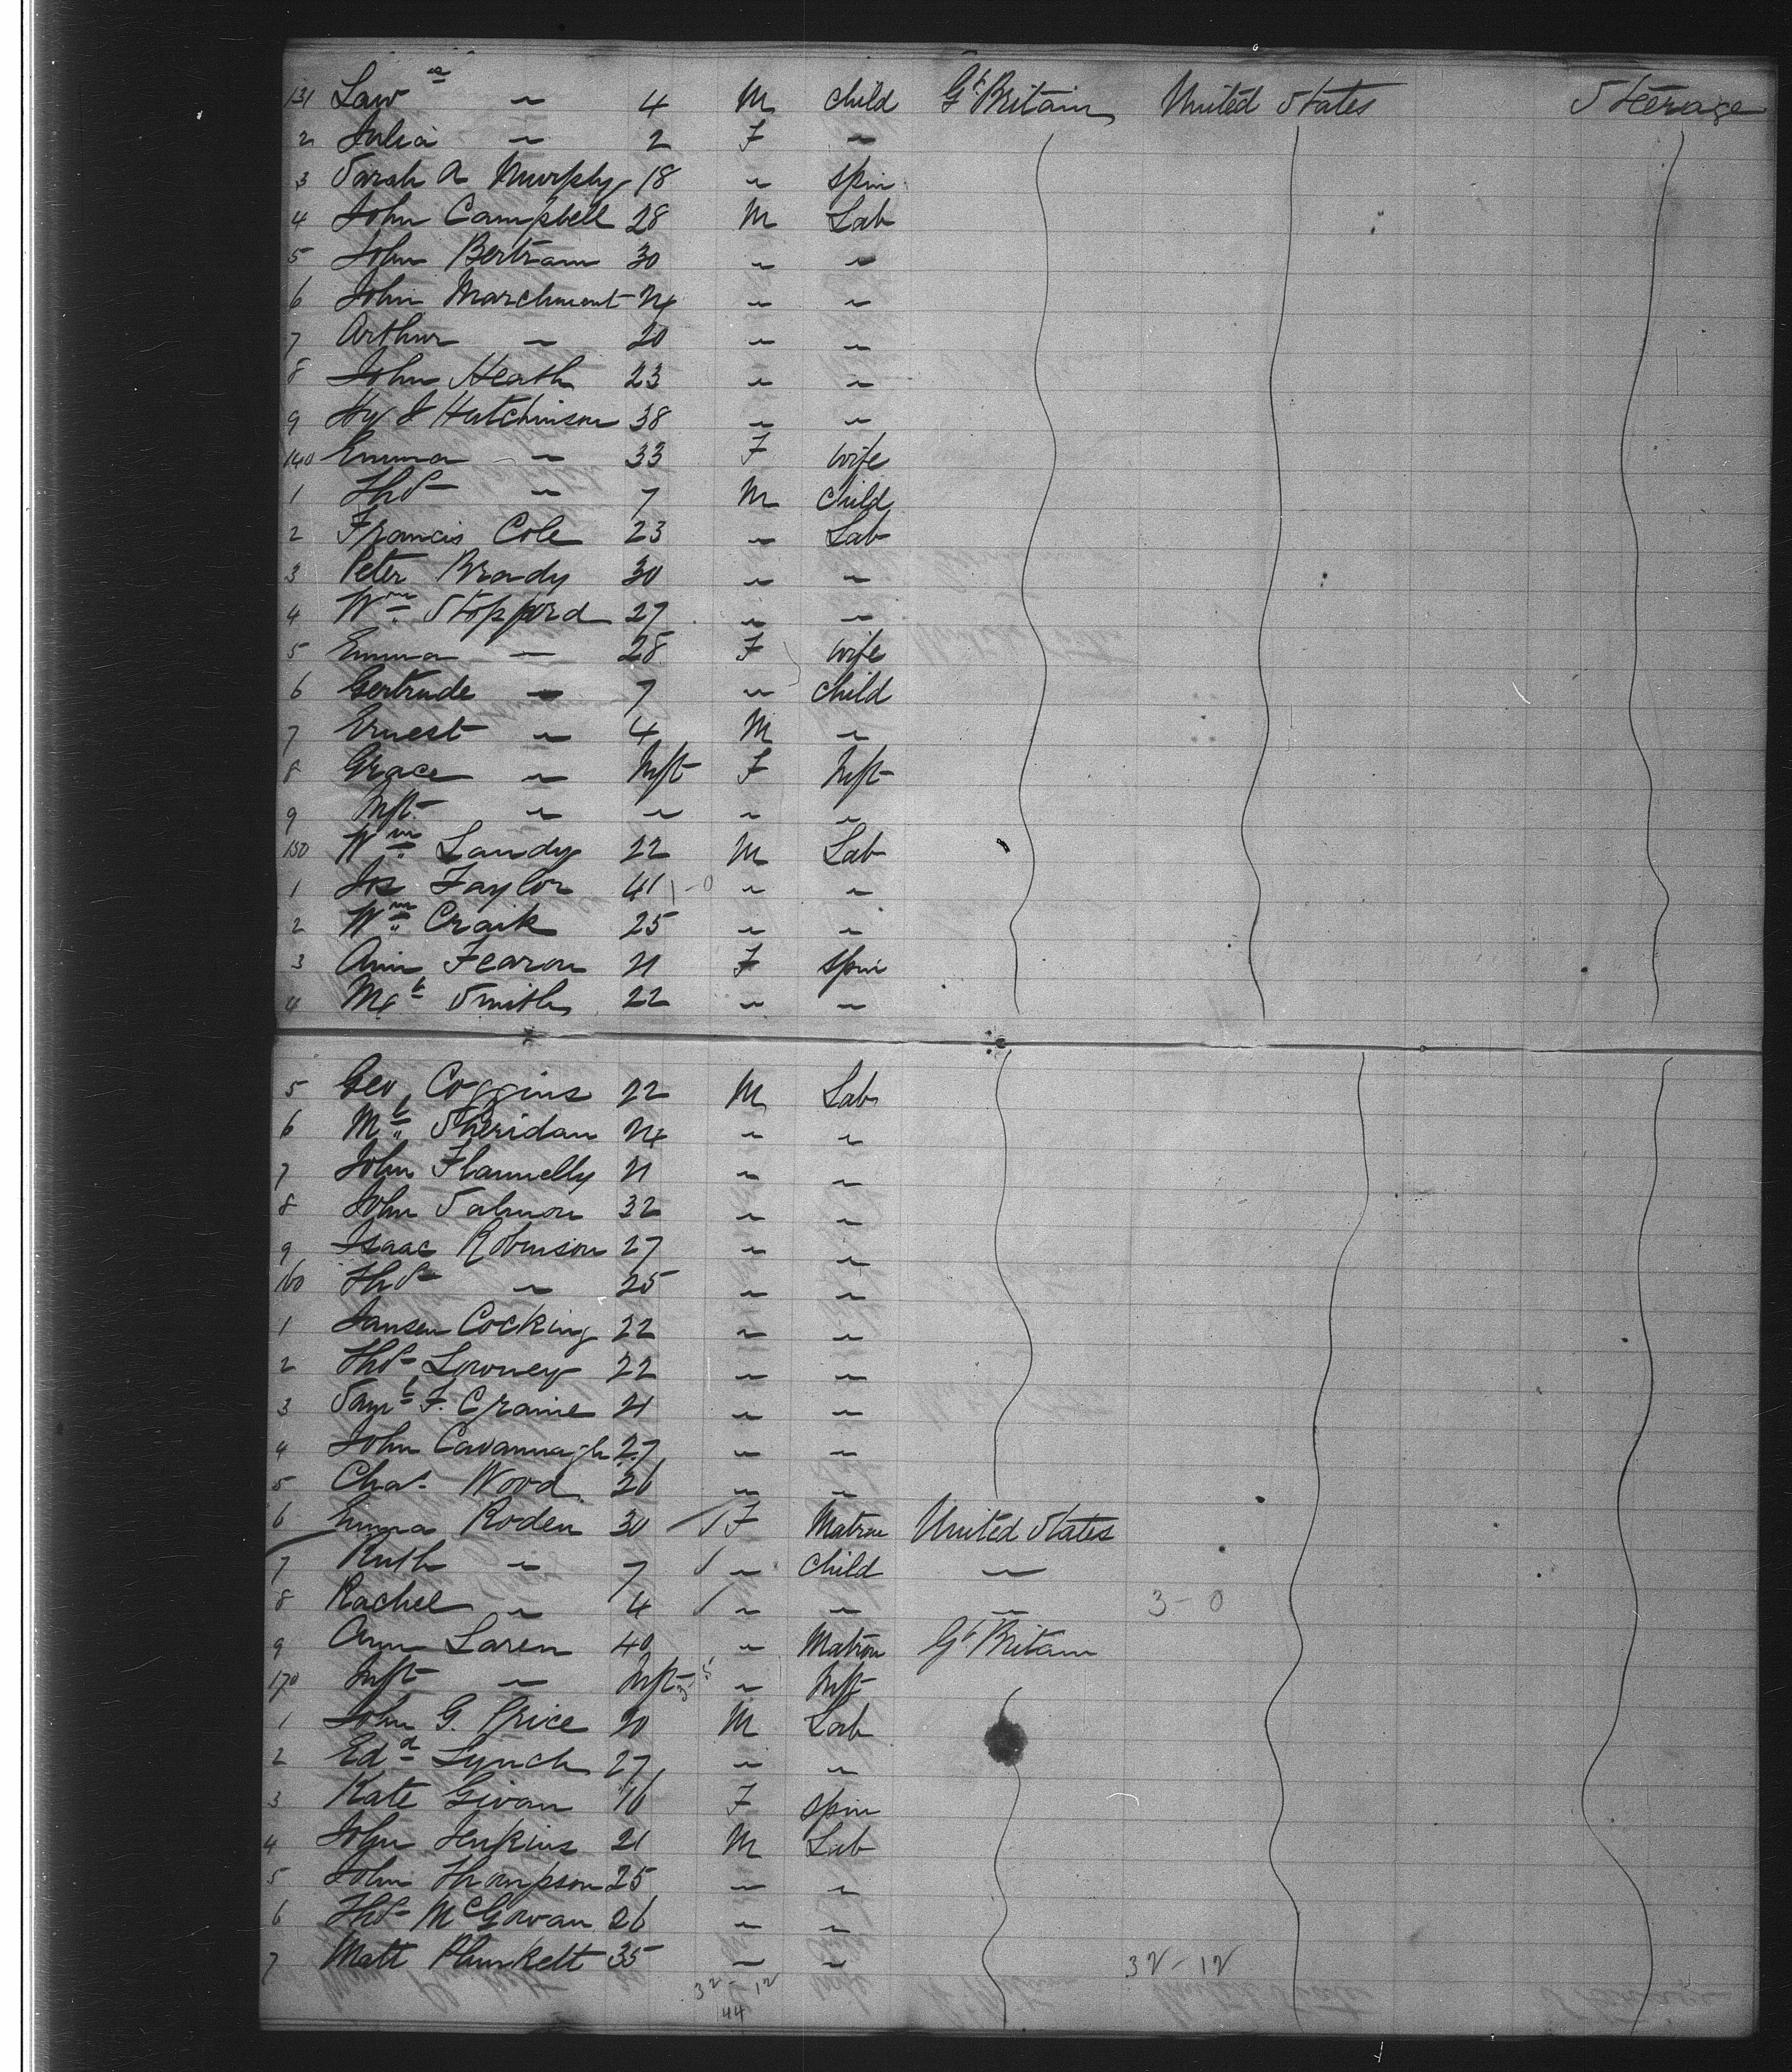 131 Lawce " 4 M child Gt Britain United States Steerage
2 Julia " 2 F "
3 Sarah A Murphy 18 " Spin
4 John Campbell 28 M Lab
5 John Bertram 30 " "
6 John Marchment 24 " "
7 Arthur " 20 " "
8 John Heath 23 " "
9 Hy J Hutchinson 38 " "
140 Emma " 33 F wife
1 Thos " 7 M child
2 Francis Cole 23 " Lab
3 Peter Brady 30 " "
4 Wm Stopford 27 " "
5 Emma " 28 F wife
6 Gertrude " 7 " child
7 Ernest " 4 M "
8 Grace " Inft F Inft
9 Inft " " " "
150 Wm Landy 22 M Lab
1 Jos Taylor 41 1-0 " "
2 Wm Craik 25 " "
3 Ann Fearon 21 F Spin
4 Mgt Smith 22 " "
5 Geo Coggins 22 M Lab
6 Mt Sheridan 24 " "
7 John Flannelly 21 " "
8 John Salmon 32 " "
9 Isaac Robinson 27 " "
160 Thos " 25 " "
1 Jansen Cocking 22 " "
2 Thos Lowney 22 " "
3 Saml F. Craine 21 " "
4 John Cavannagh 27 " "
5 Chas Wood 26 " "
6 Emma Roden 30 F Matron United States
7 Ruth " 7 " child "
8 Rachel " 4 " " " 3-0
9 Ann Laren 40 " Matron Gt Britain
170 Inft " Inft " Inft
1 John G. Price 20 M Lab
2 Edd Lynch 27 " "
3 Kate Givan 16 F Spin
4 John Jenkins 21 M Lab
5 John Thompson 25 " "
6 Thos McGowan 26 " "
7 Matt Plunkett 35 " " 32-12
32-12
44